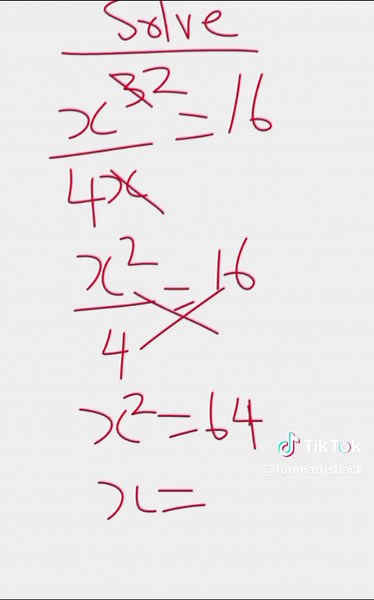 Solve
x³² = 16
4x
x² = 16
4
x² = 64
TikTok
@funmathshack
x =